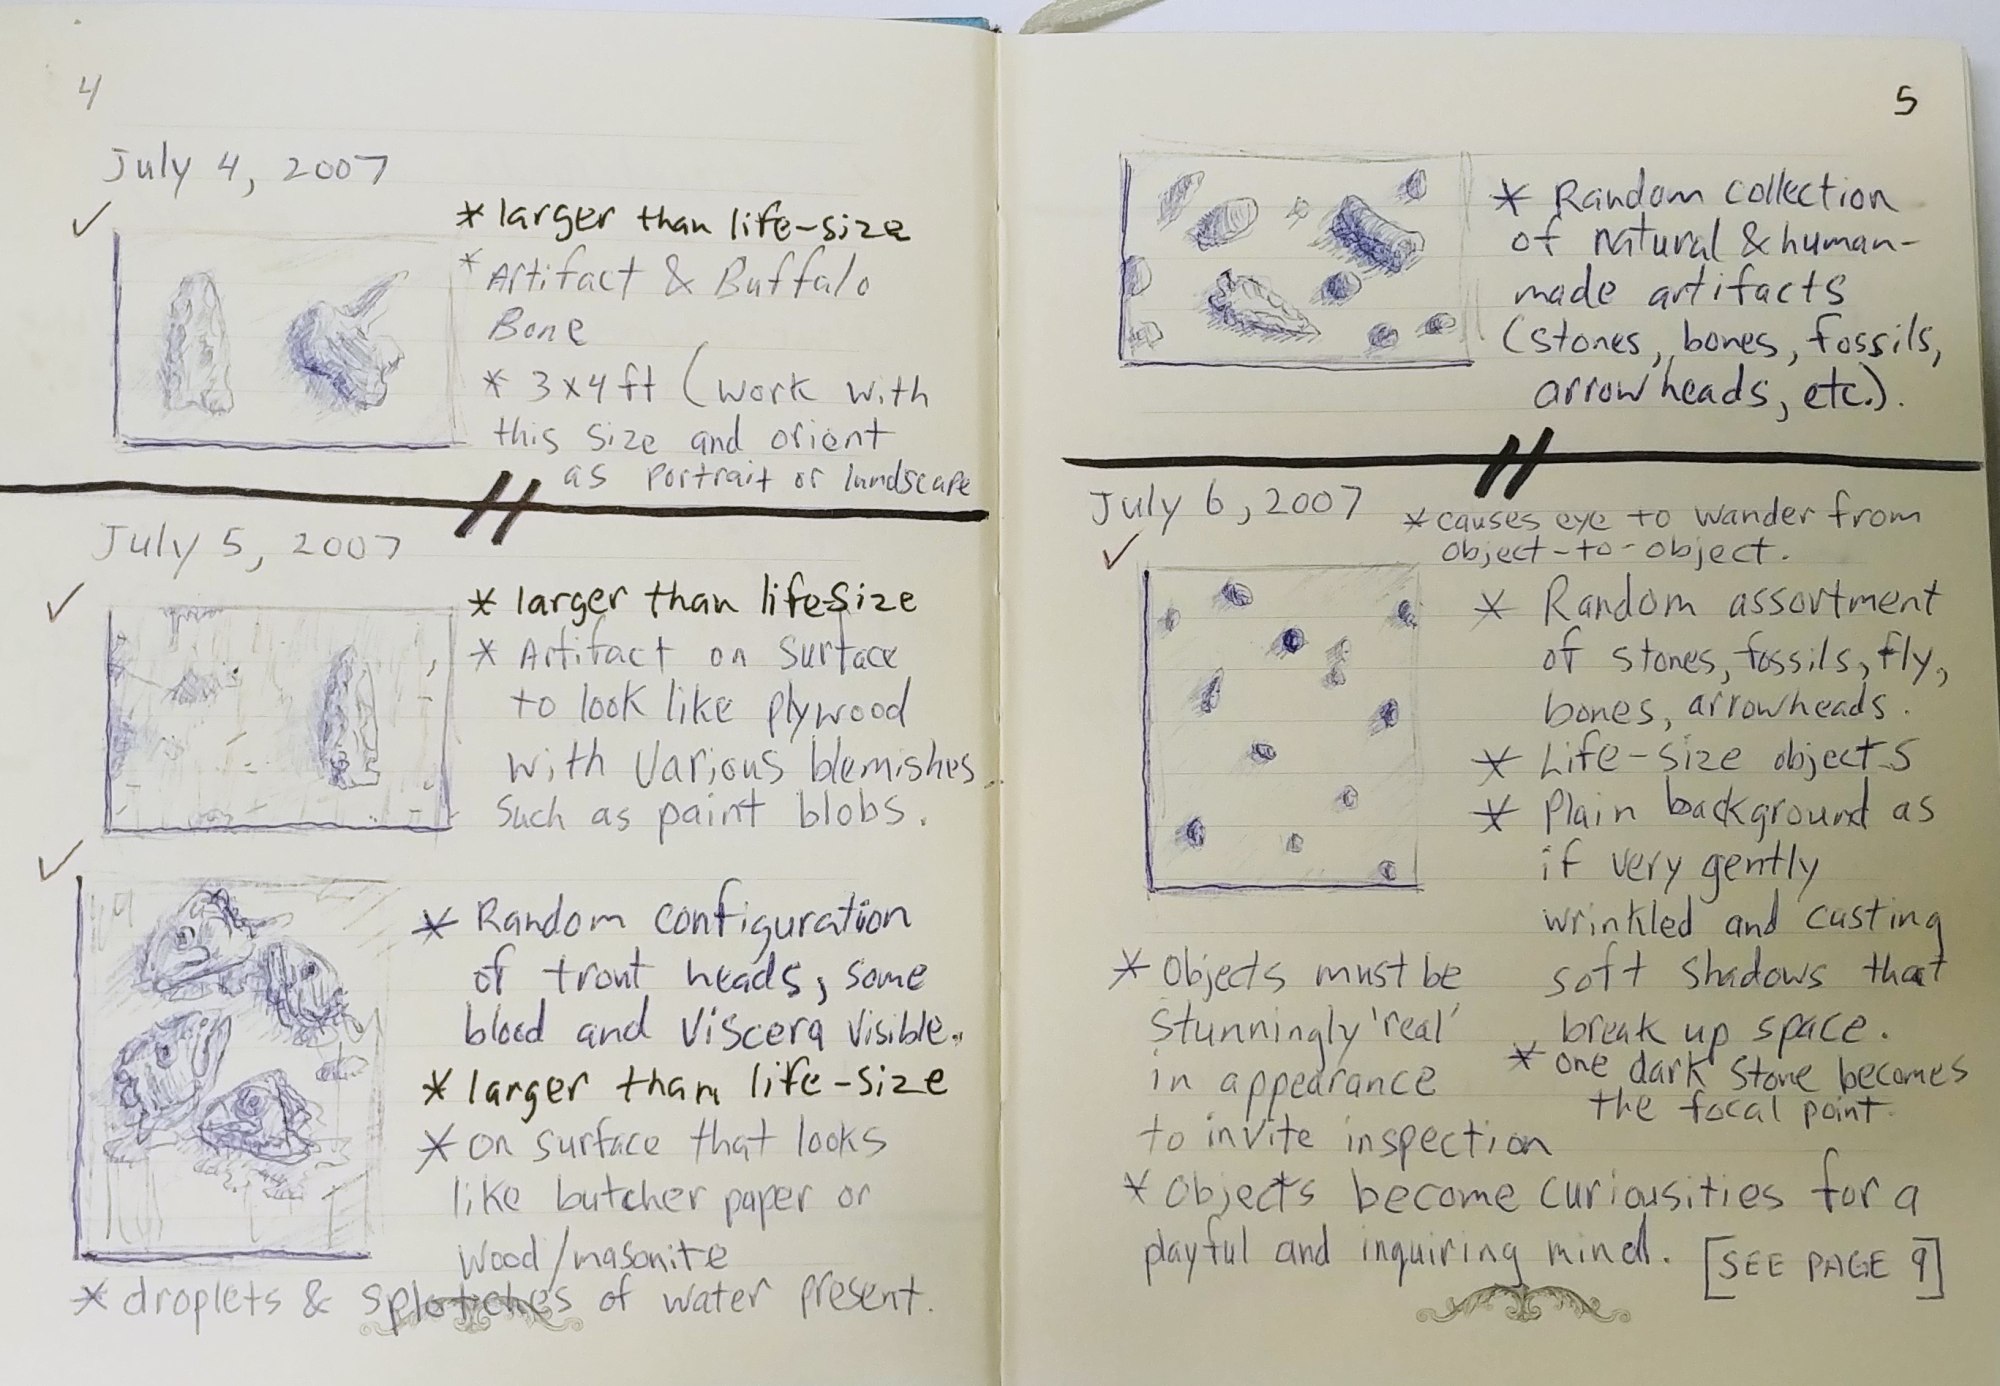 4
July 4, 2007
* larger than life-size
* Artifact & Buffalo
Bone
* 3x4 ft (work with
this size and orient
as portrait or landscape
July 5, 2007
* larger than life-size
* Artifact on surface
to look like plywood
with various blemishes
such as paint blobs.
* Random configuration
of trout heads, some
blood and viscera visible.
* larger than life-size
* on surface that looks
like butcher paper or
wood/masonite
* droplets & splotches of water present.
5
* Random collection
of natural & human-
made artifacts
(stones, bones, fossils,
arrowheads, etc.).
July 6, 2007
* causes eye to wander from
object-to-object.
* Random assortment
of stones, fossils, fly,
bones, arrowheads.
* Life-size objects
* Plain background as
if very gently
wrinkled and casting
soft shadows that
break up space.
* one dark stone becomes
the focal point.
* Objects must be
stunningly 'real'
in appearance
to invite inspection
* Objects become curiousities for a
playful and inquiring mind. [SEE PAGE 9]